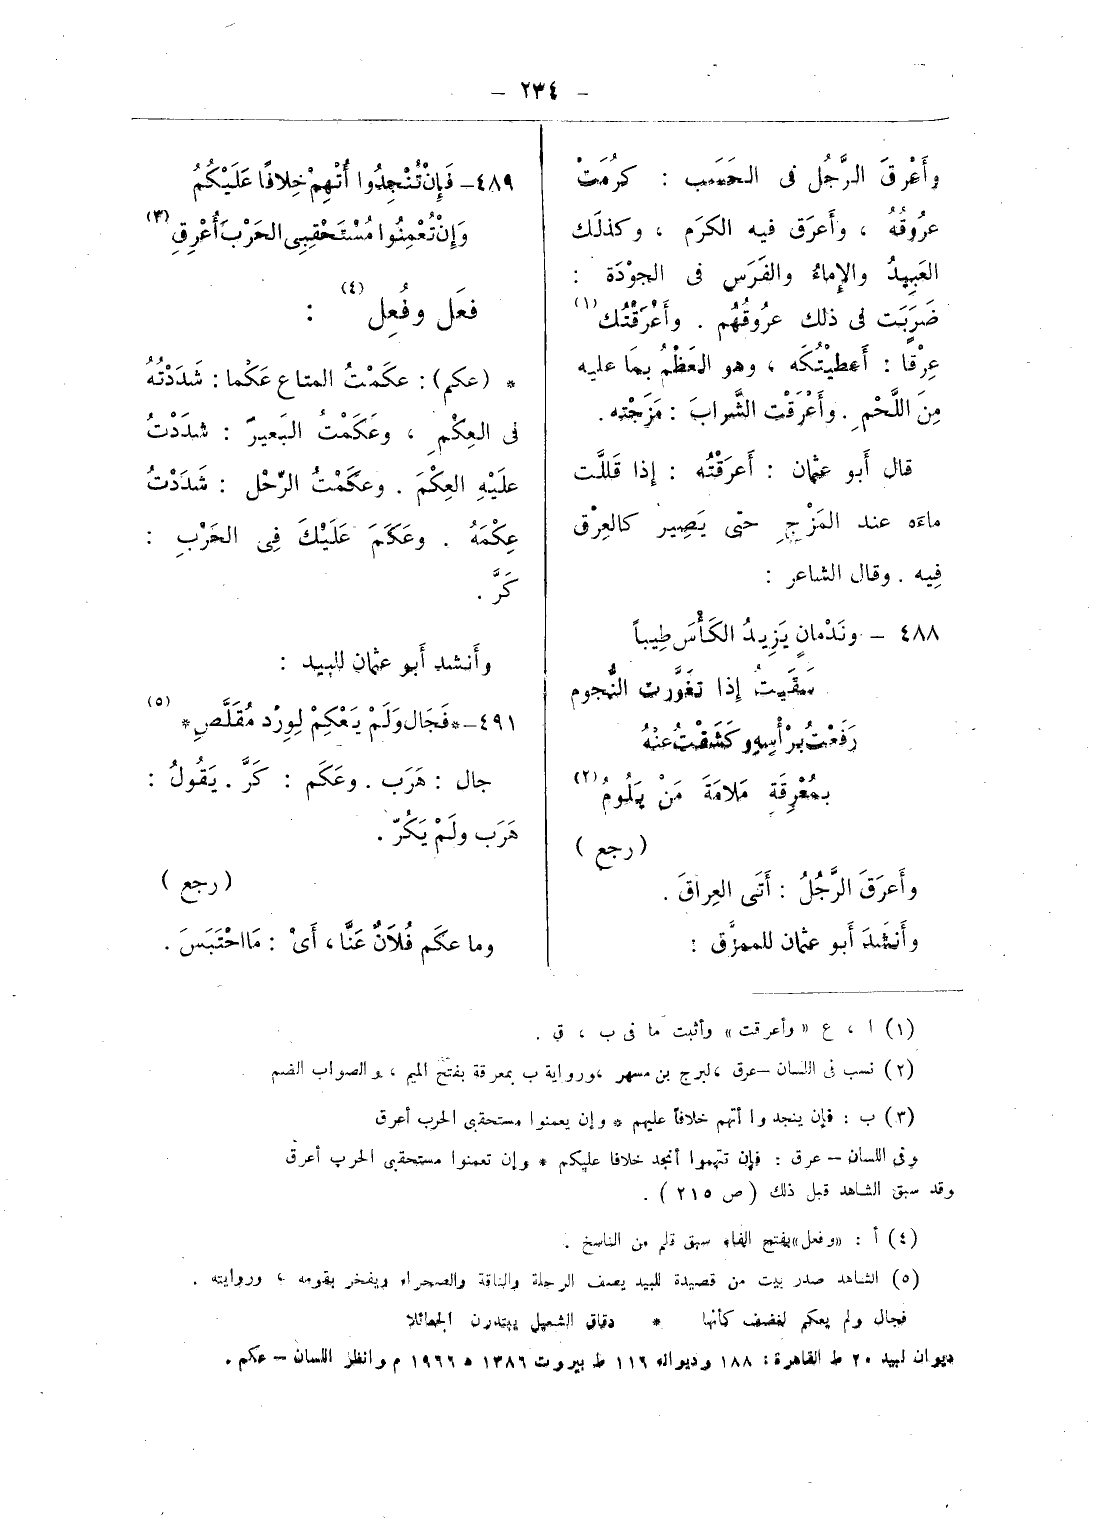 - ٢٣٤ -
وأَعْرقَ الرَّجُل فى الحَسَب : كرُمَتْ
عرُوقُهُ ، وأَعرَق فيه الكرَم ، وكذلَك
العَبِيدُ والإِماءُ والفَرَس فى الجوْدَة :
ضَرَبَت فى ذلك عرُوقُهُم . وأَعْرَقْتُك (١)
عِرْقا : أَعطيْتُكَه ، وهو العَظْمُ بمَا عليه
مِنَ اللَّحْمِ . وأَعْرَقْت الشَّرابَ : مَزَجْته .
قال أَبو عثمان : أَعرَقْتُه : إذا قَللَّت
ماءَه عند المَزْجِ حتى يَصِير كالعِرْق
فِيه . وقال الشاعر :
٤٨٨ - ونَدْمانٍ يَزِيدُ الكَأْسَ طِيباً
سَقَيتُ إذا تغَوَّرت النُّجوم
رَفَعْتُ برْأْسِهِ وكَشَفْتُ عنْهُ
بمُعْرِقَةٍ مَلامَةَ مَنْ يَلُومُ (٢)
( رجع )
وأَعرَقَ الرَّجُلُ : أَتَى العِراقَ .
وأَنشَدَ أَبو عثمان للممزَّق :
٤٨٩- فَإِنْ تُنْجِدُوا أُتْهِمْ خِلافًا عَلَيْكُمُ
وَإِنْ تُعْمِنُوا مُسْتَحْقِبِى الحَرْبَ أُعْرِقِ (٣)
فعَل وفُعِل (٤) :
* (عكم) : عكَمْتُ المتاع عَكْما : شَدَدْتُهُ
فى العِكْمِ ، وعَكَمْتُ البَعيرَ : شدَدْتُ
علَيْهِ العِكْمَ . وعكَمْتُ الرّحْل : شَدَدْتُ
عِكْمَهُ . وعَكَمَ عَلَيْكَ فِى الحَرْبِ :
كَرَّ .
وأَنشد أَبو عثمان للبيد :
٤٩١-*فَجَال وَلَمْ يَعْكِمْ لِوِرْد مُقَلَّصِ* (٥)
جال : هَرَب . وعَكَم : كَرَّ . يَقُولُ :
هَرَب ولَمْ يَكُرّ .
( رجع )
وما عكَم فُلَانٌ عَنَّا ، أَىْ : مَا احْتَبَسَ .
(١) ا ، ع «وأعرقت» وأثبت ما فى ب ، ق .
(٢) نسب فى اللسان -عرق ، لبرج بن مسهر ،ورواية ب بمعرقة بفتح الميم ، والصواب الضم
(٣) ب : فإن ينجدوا أتهم خلافاً عليهم * وإن يعمنوا مستحقبى الحرب أعرق
وفى اللسان - عرق : فإن تتهموا أنجد خلافا عليكم * وإن تعمنوا مستحقبى الحرب أعرق
وقد سبق الشاهد قبل ذلك ( ص ٢١٥ ) .
(٤) أ : «وفعل»بفتح الفاء سبق قلم من الناسخ .
(٥) الشاهد صدر بيت من قصيدة للبيد يصف الرحلة والناقة والصحراء ويفخر بقومه ، وروايته .
فجال ولم يعكم لغضف كأنها * دقاق الشعيل يبتدرن الجعائلا
ديوان لبيد ٢٠ ط القاهرة : ١٨٨ وديوانه ١١٦ ط بيروت ١٣٨٦ ه ١٩٦٦ م وانظر اللسان - عكم .